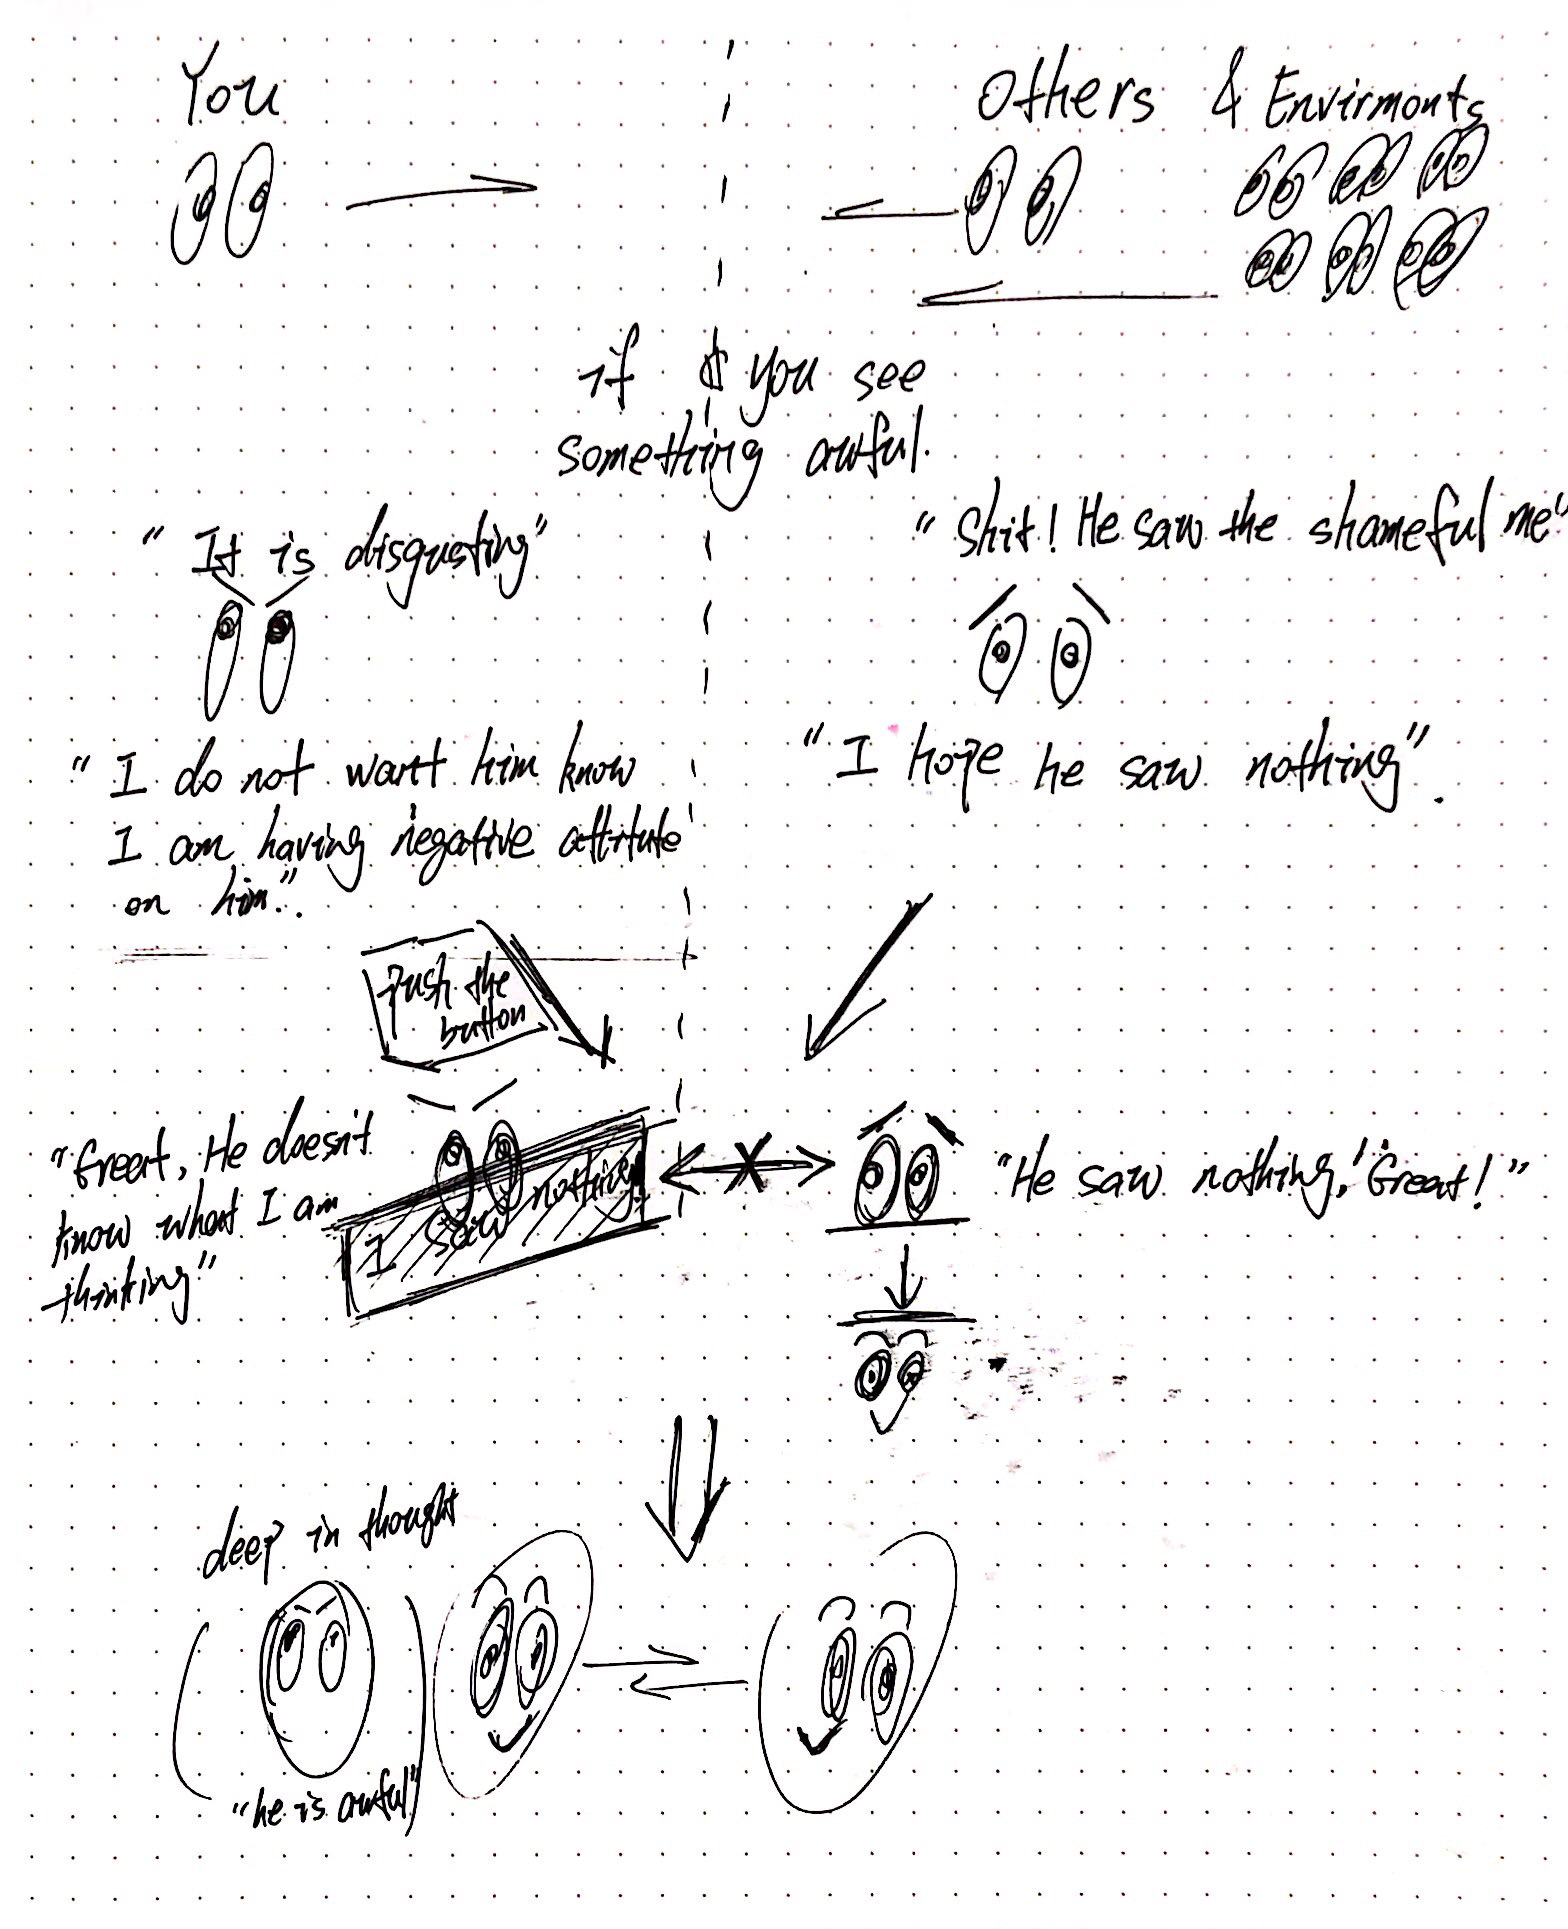 You
Others & Envirmonts
if you see
something awful.
"It is disgusting"
"Shit! He saw the shameful me"
"I do not want him know
I am having negative attitute
on him".
"I hope he saw nothing".
push the
button
"Great, He doesn't
know what I am
thinking"
I saw nothing!
"He saw nothing, Great!"
deep in thought
"he is awful"